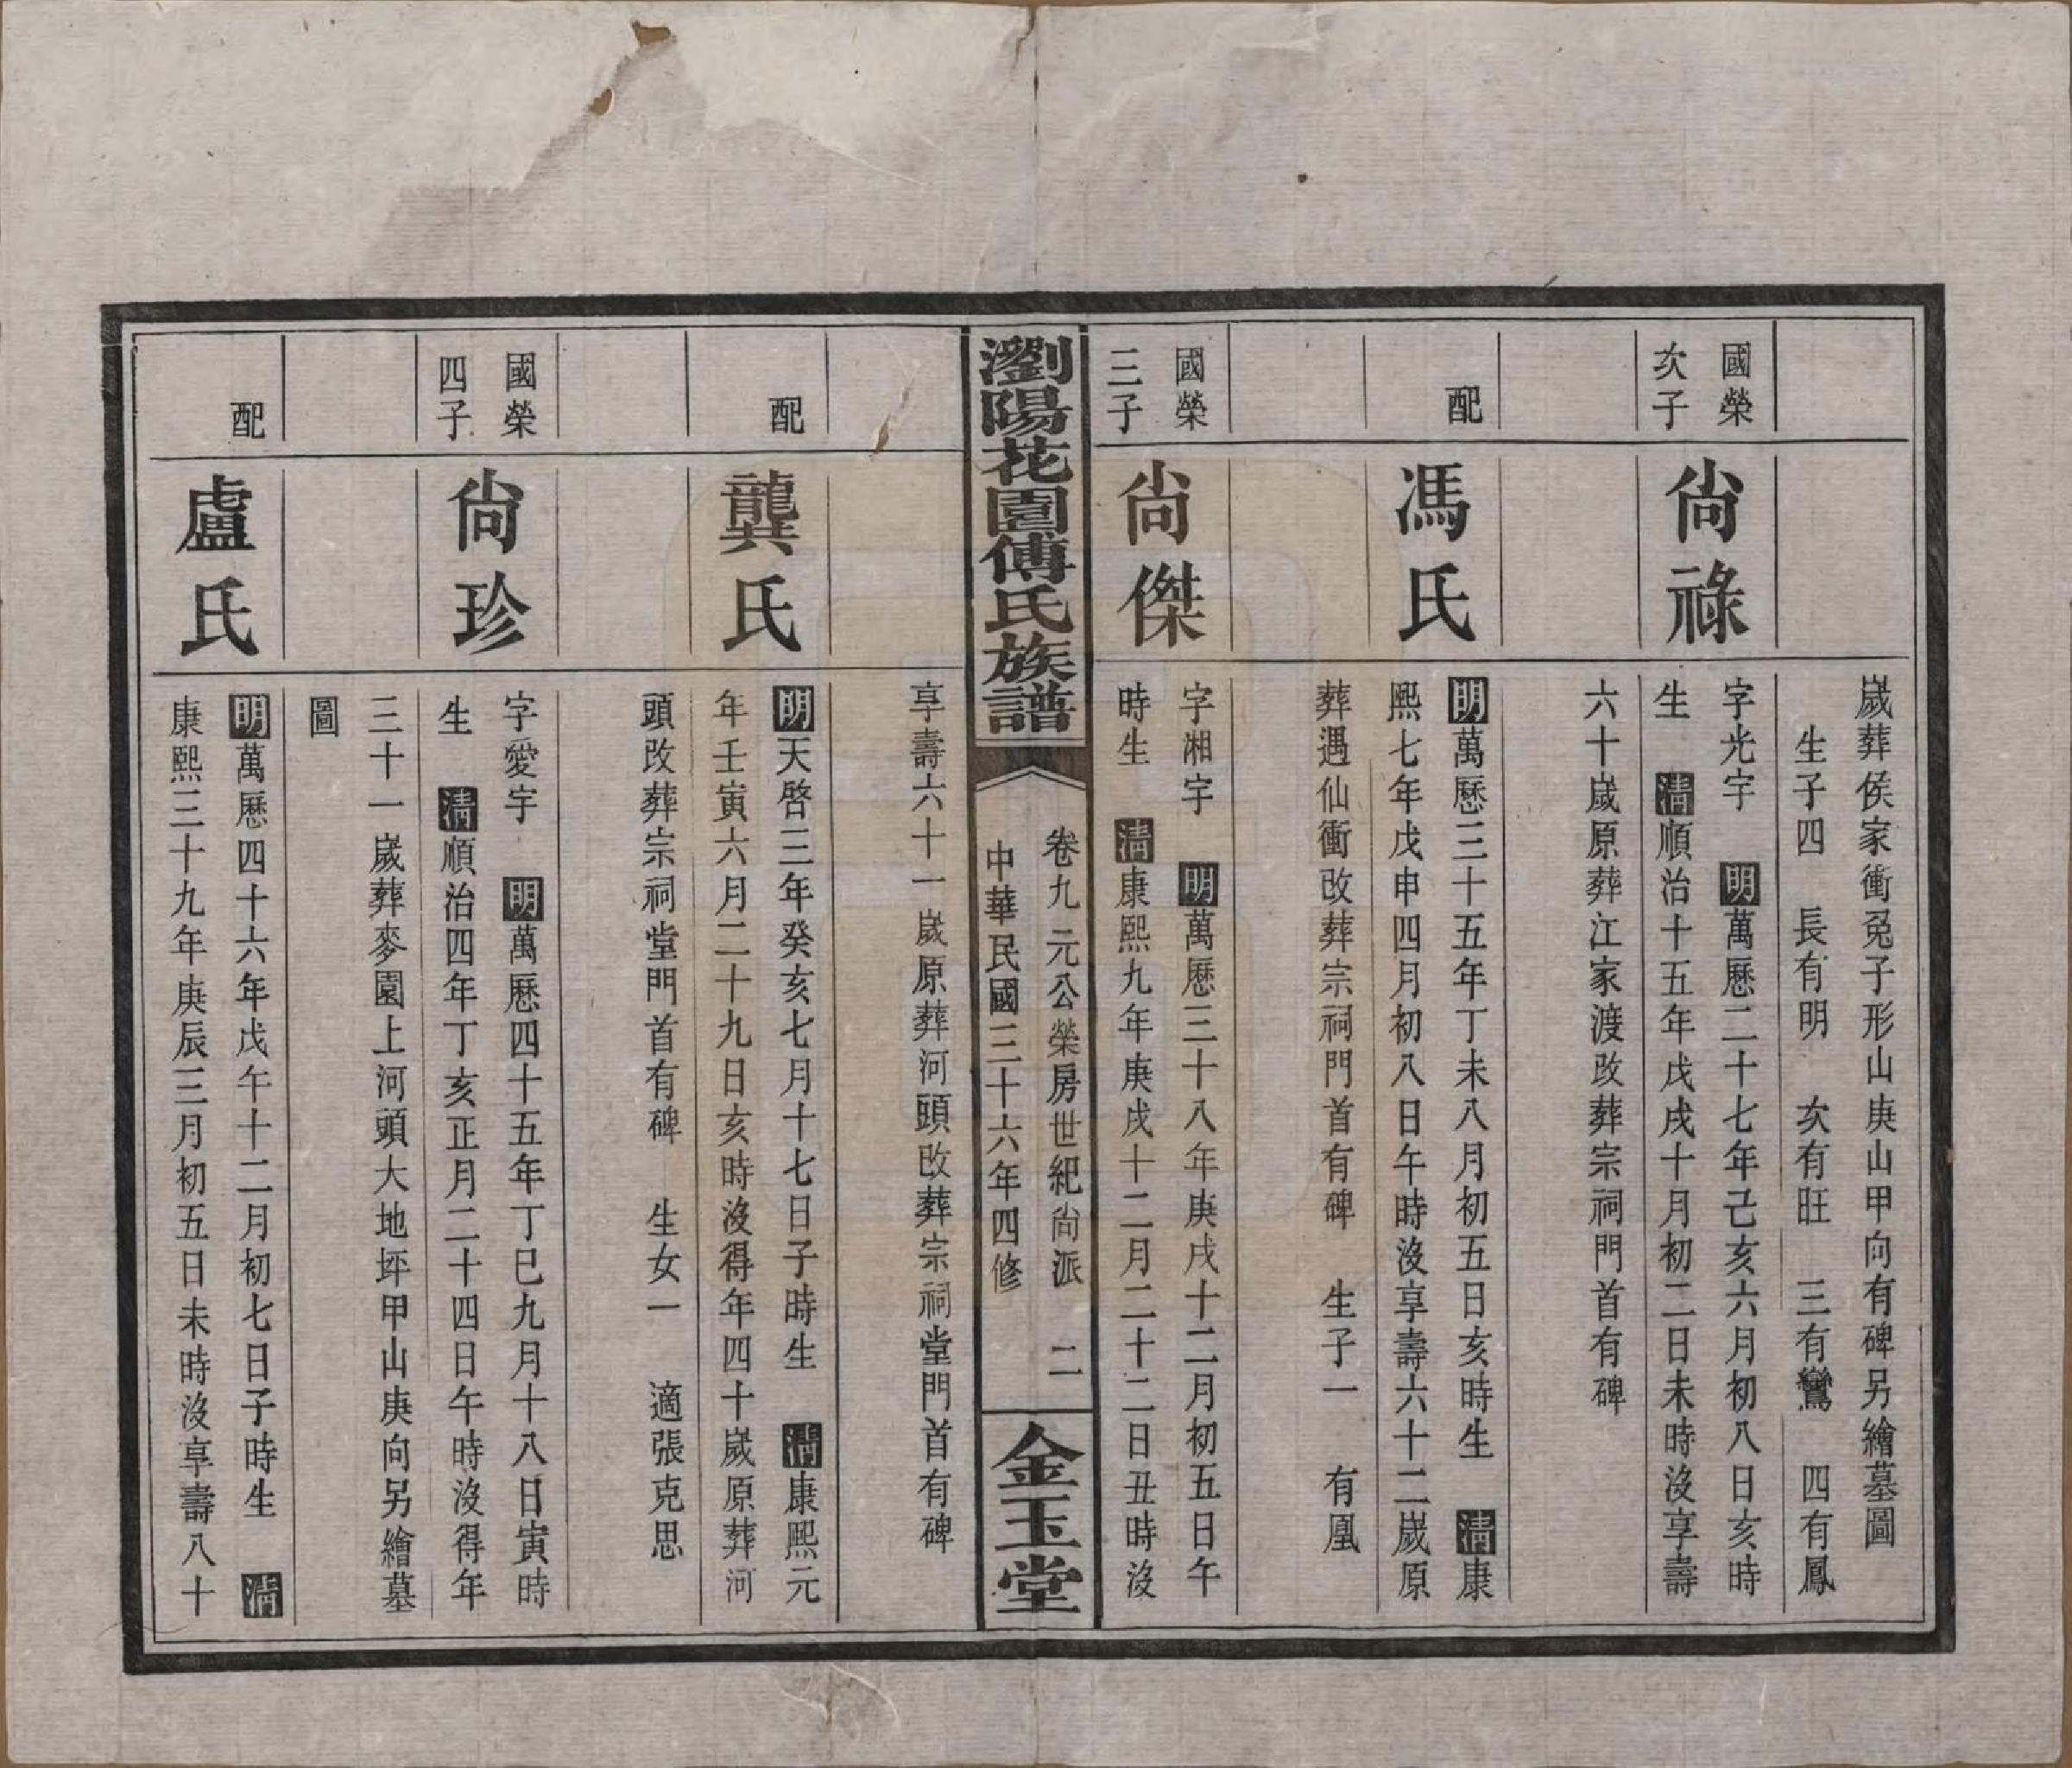 歲葬侯家衝兎子形山庚山甲向有碑另繪墓圖
生子四　長有明　次有旺　三有鸞　四有鳳
國榮
次子
尙祿
字光宇　明萬歷二十七年己亥六月初八日亥時
生　清順治十五年戊戌十月初二日未時沒享壽
六十歲原葬江家渡改葬宗祠門首有碑
配
馮氏
明萬歷三十五年丁未八月初五日亥時生　清康
熙七年戊申四月初八日午時沒享壽六十二歲原
葬遇仙衝改葬宗祠門首有碑　生子一　有凰
國榮
三子
尙傑
字湘宇　明萬歷三十八年庚戌十二月初五日午
時生　清康熙九年庚戌十二月二十二日丑時沒
瀏陽花園傅氏族譜
卷九元公榮房世紀尙派　二
中華民國三十六年四修
金玉堂
享壽六十一歲原葬河頭改葬宗祠堂門首有碑
配
龔氏
明天啓三年癸亥七月十七日子時生　清康熙元
年壬寅六月二十九日亥時沒得年四十歲原葬河
頭改葬宗祠堂門首有碑　生女一　適張克思
國榮
四子
尙珍
字愛宇　明萬歷四十五年丁巳九月十八日寅時
生　清順治四年丁亥正月二十四日午時沒得年
三十一歲葬麥園上河頭大地坪甲山庚向另繪墓
圖
配
盧氏
明萬歷四十六年戊午十二月初七日子時生　清
康熙三十九年庚辰三月初五日未時沒享壽八十